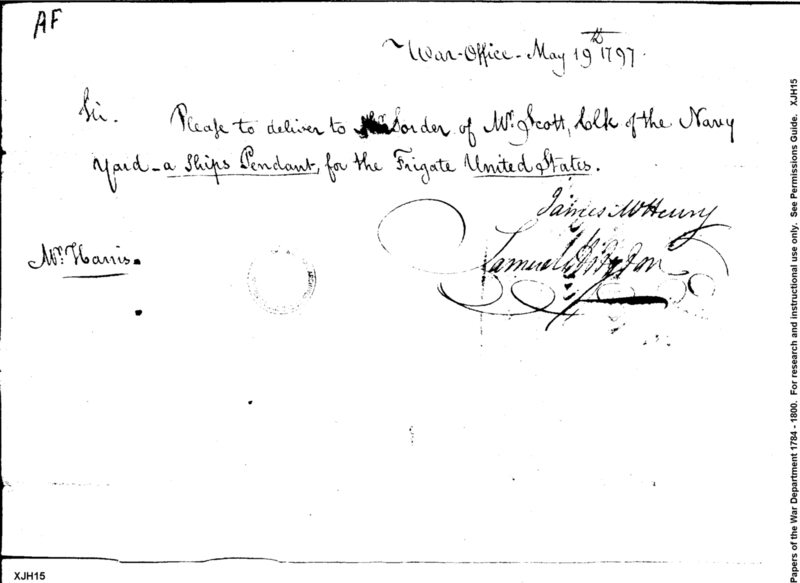 AF
War-Office - May 19th 1797.
Sir. Please to deliver to order of Mr. Scott, Clk of the Navy
Yard - a Ships Pendant, for the Frigate United States.
James McHenry
Samuel Hodgdon
Mr. Harris.
XJH15
Papers of the War Department 1784 - 1800. For research and instructional use only. See Permissions Guide. XJH15